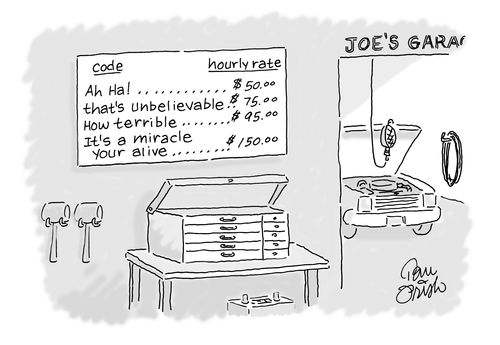 JOE'S GARA
code hourly rate
Ah Ha! ............ $50.00
that's unbelievable .. $75.00
How terrible ....... $95.00
It's a miracle
your alive ........ $150.00